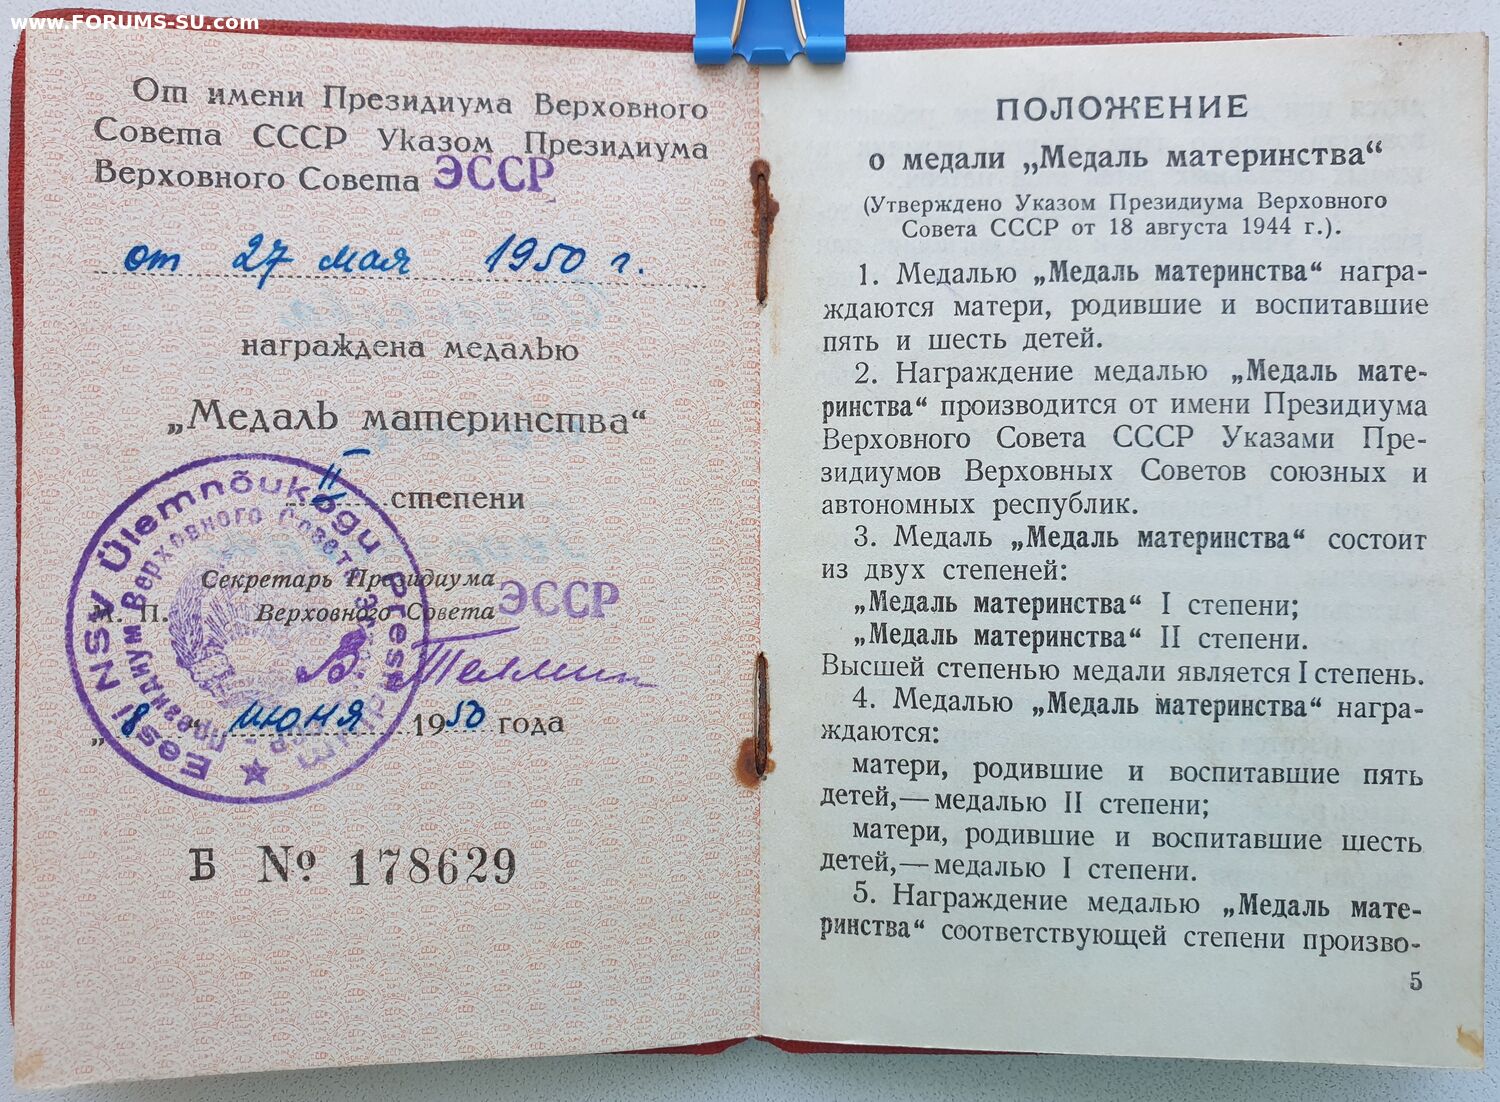 www.FORUMS-SU.com
От имени Президиума Верховного
Совета СССР Указом Президиума
Верховного Совета ЭССР
от 27 мая 1950 г.
награждена медалью
„Медаль материнства“
II степени
Секретарь Президиума
М. П. Верховного Совета ЭССР
В. Телман
„8“ июня 1950 года
Eesti NSV Ülemnõukogu Presiidium
Президиум Верховного Совета Э
Б № 178629
ПОЛОЖЕНИЕ
о медали „Медаль материнства“
(Утверждено Указом Президиума Верховного
Совета СССР от 18 августа 1944 г.).
1. Медалью „Медаль материнства“ награ-
ждаются матери, родившие и воспитавшие
пять и шесть детей.
2. Награждение медалью „Медаль мате-
ринства“ производится от имени Президиума
Верховного Совета СССР Указами Пре-
зидиумов Верховных Советов союзных и
автономных республик.
3. Медаль „Медаль материнства“ состоит
из двух степеней:
„Медаль материнства“ I степени;
„Медаль материнства“ II степени.
Высшей степенью медали является I степень.
4. Медалью „Медаль материнства“ награ-
ждаются:
матери, родившие и воспитавшие пять
детей,—медалью II степени;
матери, родившие и воспитавшие шесть
детей,—медалью I степени.
5. Награждение медалью „Медаль мате-
ринства“ соответствующей степени произво-
5